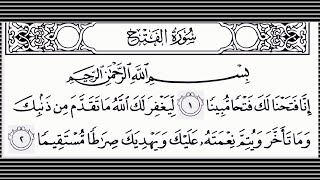 سُورَةُ الفَتْحِ
بِسْمِ ٱللَّهِ ٱلرَّحْمَٰنِ ٱلرَّحِيمِ
إِنَّا فَتَحْنَا لَكَ فَتْحًا مُّبِينًا ١ لِّيَغْفِرَ لَكَ ٱللَّهُ مَا تَقَدَّمَ مِن ذَنۢبِكَ
وَمَا تَأَخَّرَ وَيُتِمَّ نِعْمَتَهُۥ عَلَيْكَ وَيَهْدِيَكَ صِرَٰطًا مُّسْتَقِيمًا ٢